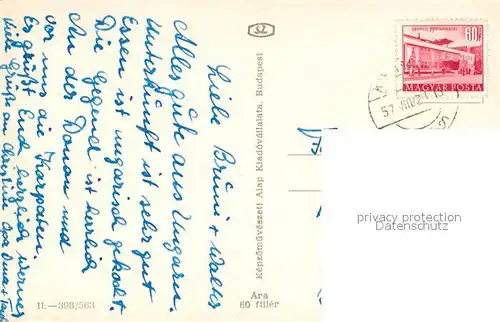 Liebe Bruni + Walter
Alles gute aus Ungarn.
Unterkunft ist sehr gut
Essen ist ungarisch gekocht.
Die Gegend ist herrlich
An der Donau und
vor uns die Karpaten.
Es grüßt Euch herzlich Werner
Viele Grüße an Christine, Opa Oma + Tante
SZ
Képzőművészeti Alap Kiadóvállalata, Budapest
Ára
60 fillér
II.—398/563
60f
MAGYAR POSTA
57 VIII 21
privacy protection
Datenschutz